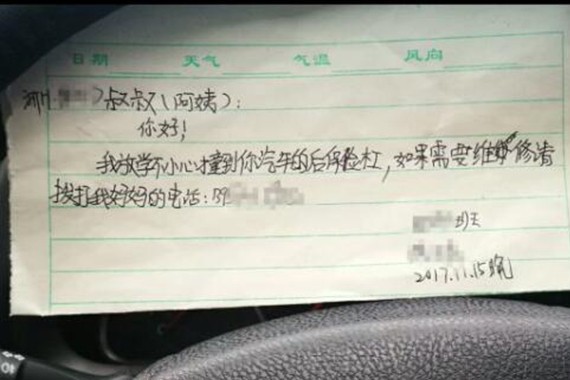 日期 天气 气温 风向
叔叔(阿姨):
你好!
我放学不小心撞到你汽车的后保险杠,如果需要维修请
拨打我妈妈的电话:139
班
2017.11.15晚